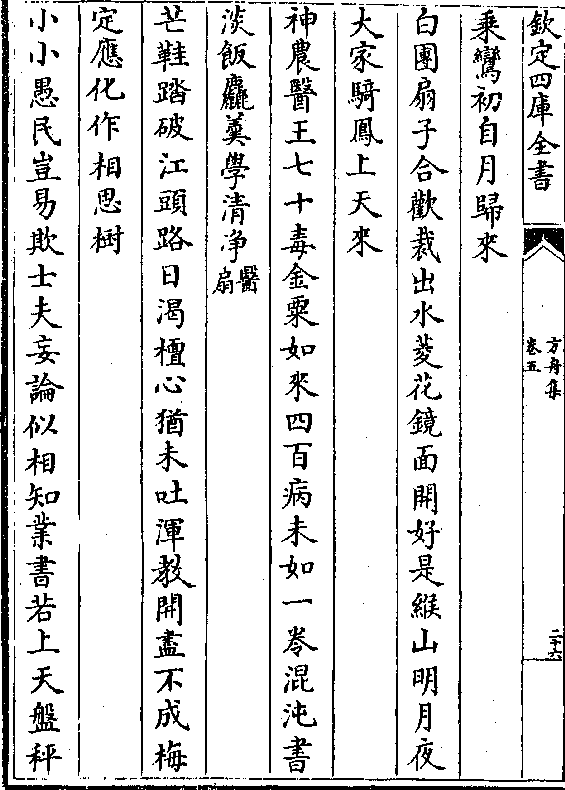 欽定四庫全書
方舟集
卷五
二十六
乘鸞初自月歸來
白團扇子合歡裁出水菱花鏡面開好是緱山明月夜
大家騎鳳上天來
神農醫王七十毒金粟如來四百病未如一卷混沌書
淡飯麤羮學清浄醫扇
芒鞋踏破江頭路日渴檀心猶未吐渾教開盡不成梅
定應化作相思樹
小小愚民豈易欺士夫妄論似相知業書若上天盤秤